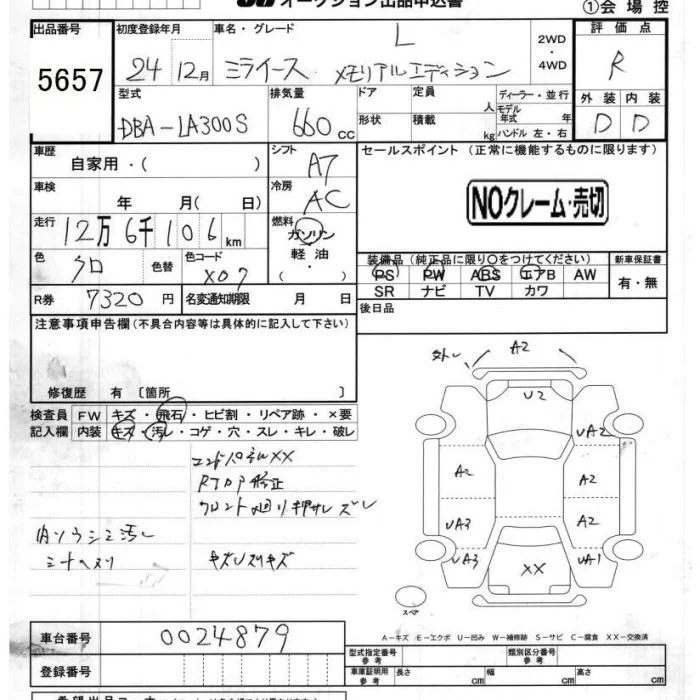 オークション出品申込書
①会場控
出品番号 初度登録年月 車名・グレード 評価点
5657 24 12月 ミライース L メモリアルエディション 2WD・4WD R
型式 排気量 ドア 定員 人 ディーラー・並行 外装 内装
DBA-LA300S 660cc 形状 積載 kg モデル年式 年 ハンドル 左・右 D D
車歴 自家用・( ) シフト A7 セールスポイント (正常に機能するものに限ります)
車検 年 月( 日) 冷房 AC NOクレーム・売切
走行 12万6千106km 燃料 ガソリン 軽油 ・( )
装備品(純正品に限り〇をつけてください) 新車保証書
色 クロ 色替 色コード X07 PS PW ABS エアB AW 有・無
SR ナビ TV カワ
R券 7320円 名変通知期限 月 日 後日品
注意事項申告欄(不具合内容等は具体的に記入して下さい)
修復歴 有〔箇所 〕
検査員 FW キズ・飛石・ヒビ割・リペア跡・×要
記入欄 内装 キズ・汚レ・コゲ・穴・スレ・キレ・破レ
エンドパネルXX
修正
フロント廻り押サレズレ
汚レ
シートヘタリ
外レ A2
U2
UA2
A2 A2
UA3 A2
UA3 UA1
XX
スペア
A-キズ E-エクボ U-凹み W-補修跡 S-サビ C-腐食 XX-交換済
車台番号 0024879 型式指定番号 参考 類別区分番号 参考
登録番号 車庫証明用 参考 長さ cm 幅 cm 高さ cm